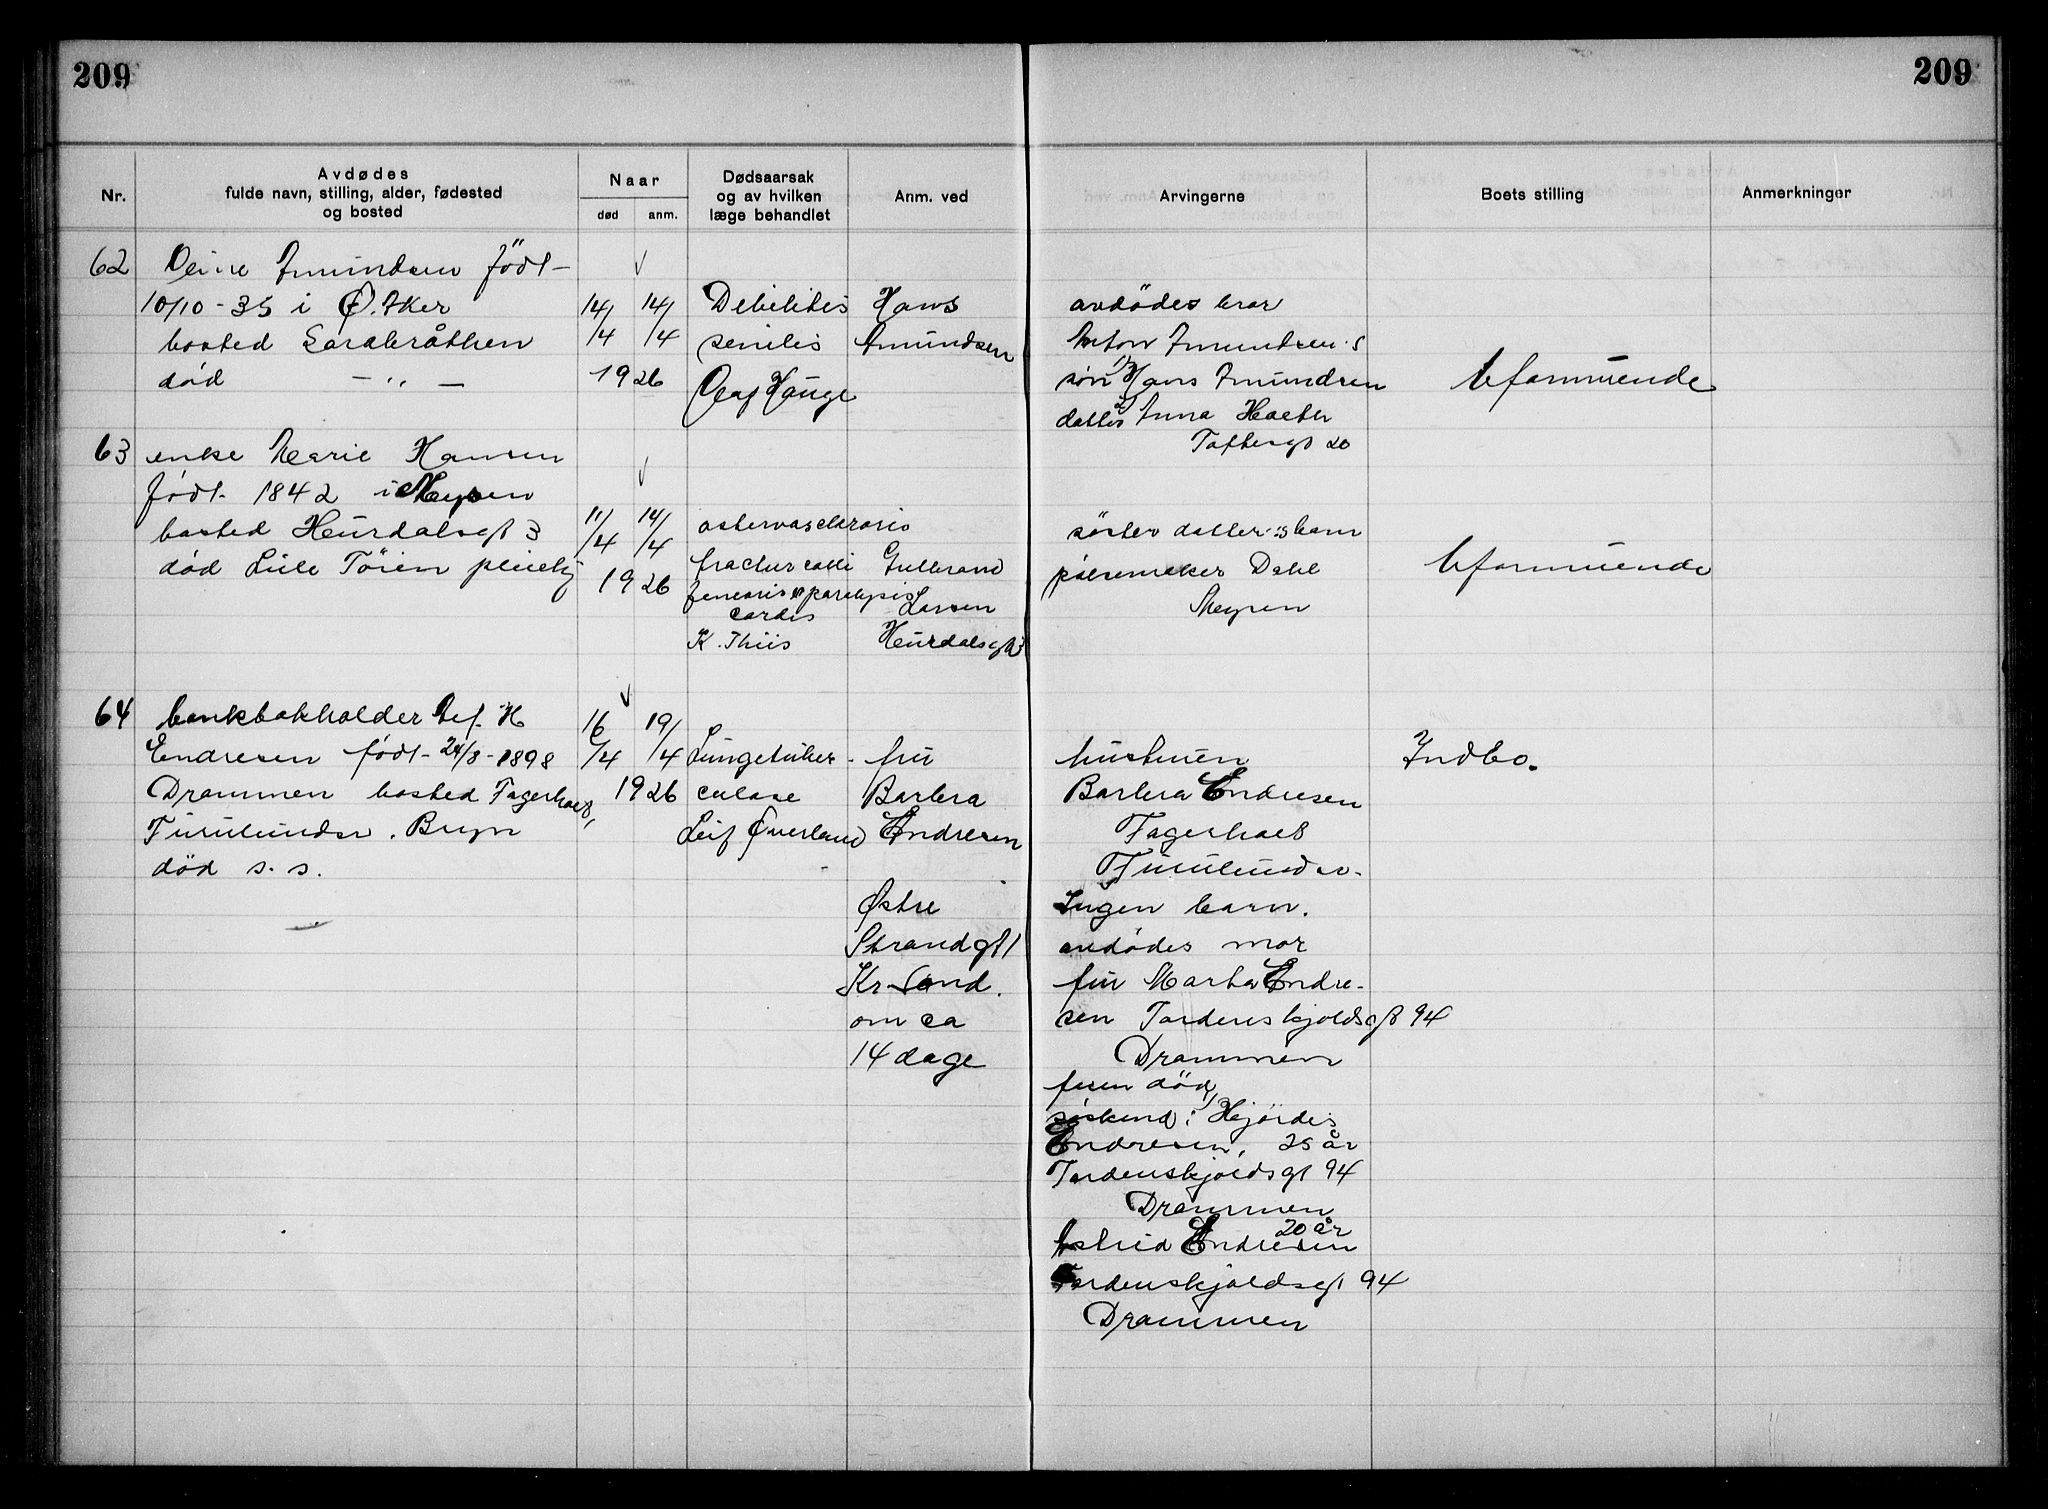 209
209
Nr.
Avdødes
fulde navn, stilling, alder, fødested
og bosted
Naar
død
anm.
Dødsaarsak
og av hvilken
læge behandlet
Anm. ved
Arvingerne
Boets stilling
Anmerkninger
62
Amundsen født
10/10-35 i Ø. Aker
bosted Sarabråthen
død - " -
14/4 14/4
1926
Debilitas
senilis
Olaf Hauge
Hans
Amundsen
avdødes bror
Anton Amundsen s
søn 1) Hans Amundsen
datter 2) Anna
Toftesgt 20
Uformuende
63
enke Marie Hansen
født 1842 i Mysen
bosted Hurdalsgt 3
død Lille Tøien pleiehj
11/4 14/4
1926
fractur colli
femoris paralysis
cordis
K. Thiis
Gulbrand
Larsen
Hurdalsgt 3
søster datter :s barn
pølsemaker Dahl
Mysen
Uformuende
64
bankbokholder Alf. H
Endresen født 24/8-1898
Drammen bosted Fagerholt,
Furulundsv. Bryn
død s. s.
16/4 19/4
1926
Lungetuber-
culose
Leif Øverland
fru
Barbra
Endresen
Østre
Strandgt 1
Kr Sand.
om ca
14 dage
hustruen
Barbra Endresen
Fagerholt
Furulundsv.
Ingen barn.
avdødes mor
fru Marta Endre-
sen Tordenskjoldsgt 94
Drammen
faren død,
søskend: Hjørdis
Endresen, 25 år
Tordenskjoldsgt 94
Drammen
20 år
Astrid Endresen
Tordenskjoldsgt 94
Drammen
Indbo.